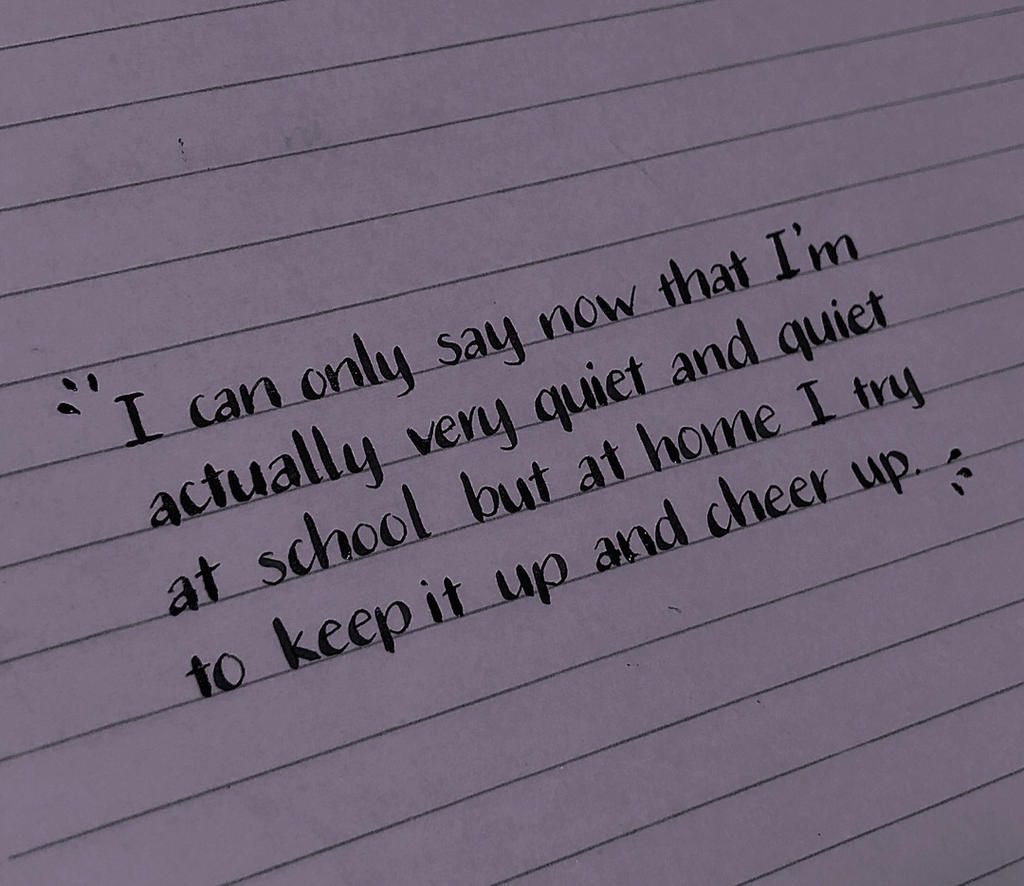 "I can only say now that I'm
actually very quiet and quiet
at school but at home I try
to keep it up and cheer up."